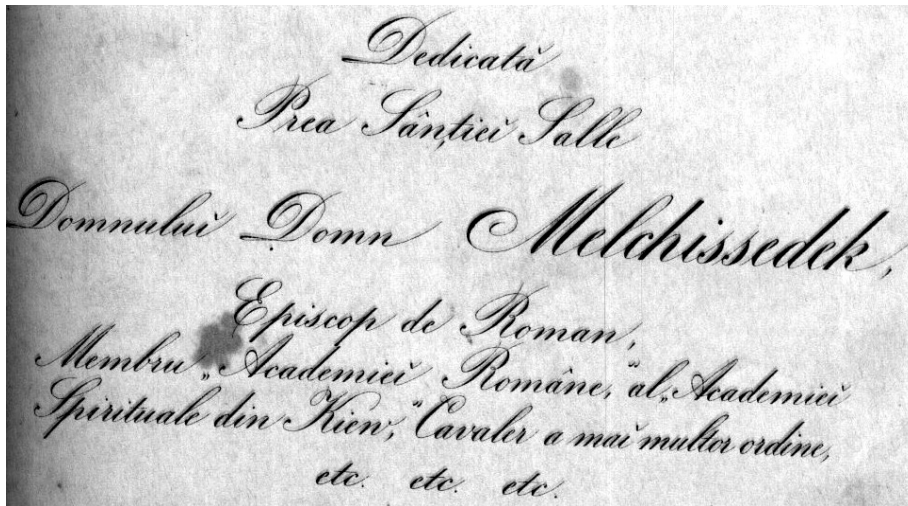 Dedicată
Prea Sânției Salle
Domnului Domn Melchissedek,
Episcop de Roman,
Membru „Academiei Române,“ al „Academiei
Spirituale din Kiev,“ Cavaler a mai multor ordine,
etc. etc. etc.